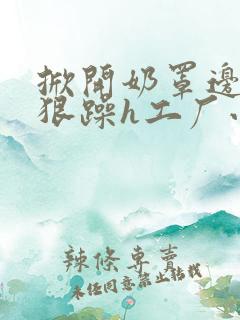 掀開奶罩邊
狠躁h工厂、
辣條專賣
未任同意禁止转载